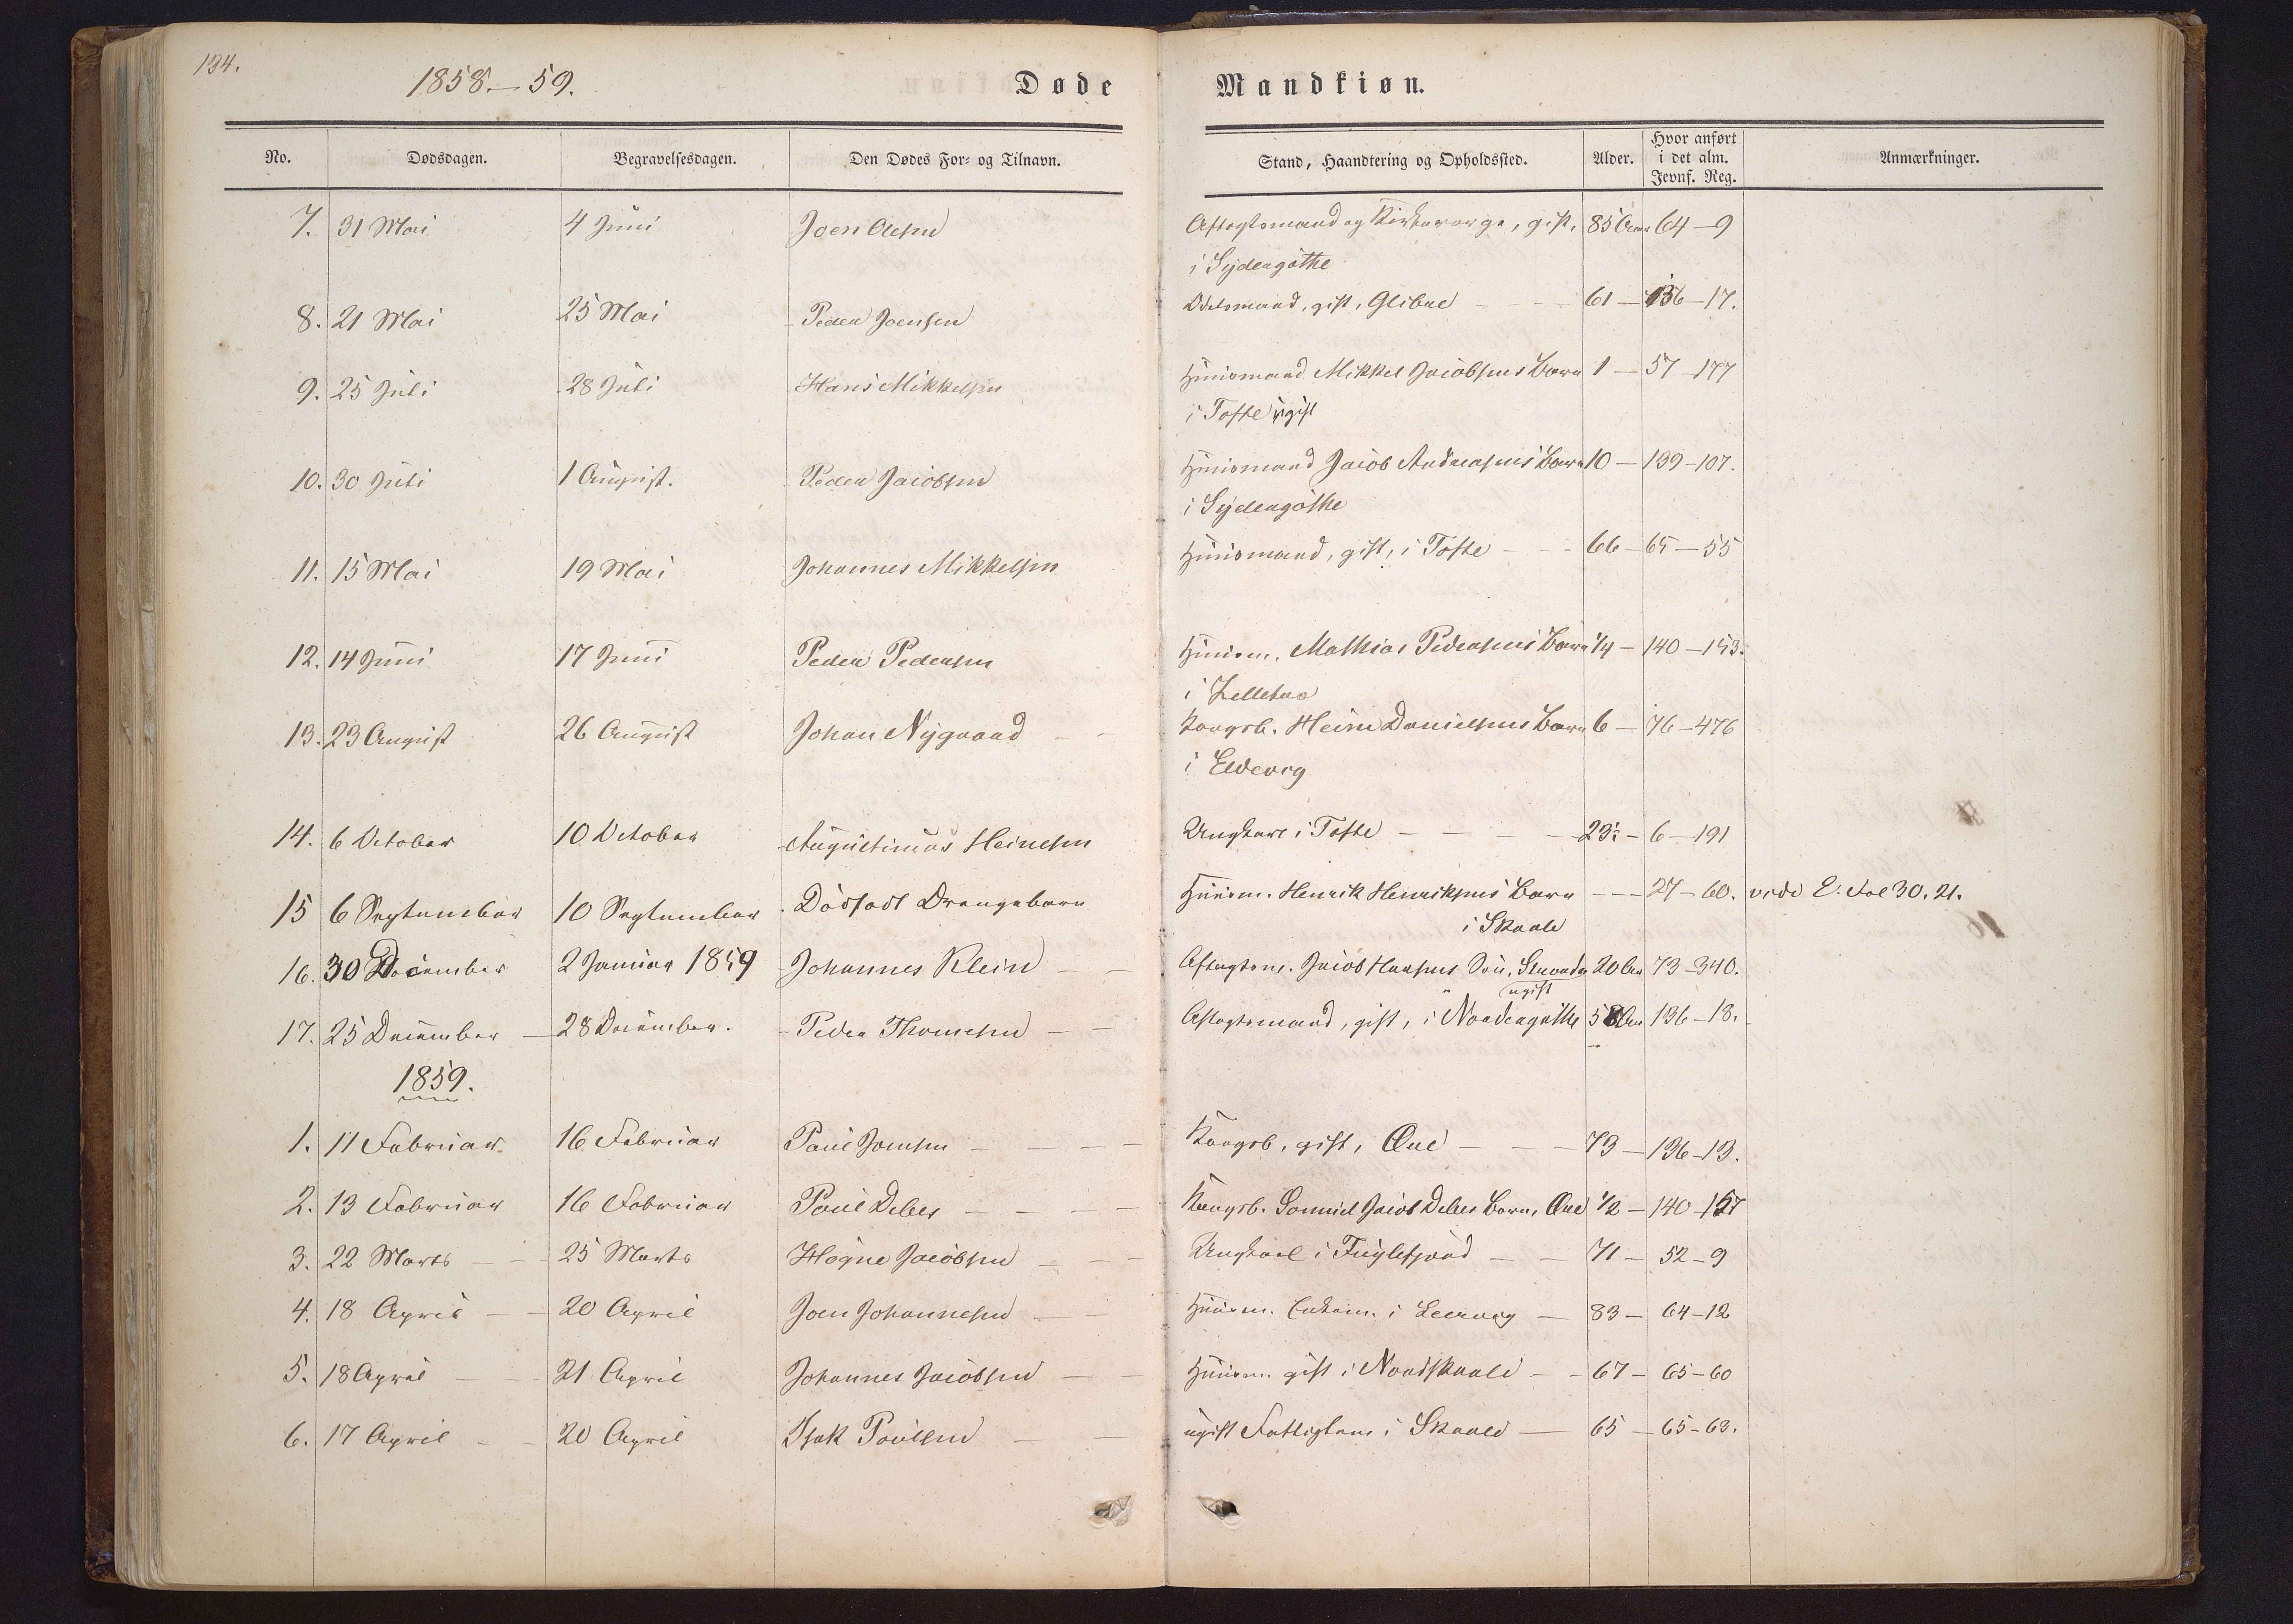 134.
1858.—59.
Døde Mandkiøn.
No. Dødsdagen. Begravelsesdagen. Den Dødes For- og Tilnavn. Stand, Haandtering og Opholdssted. Alder. Hvor anført i det alm. Jevnf. Reg. Anmærkninger.
7. 31 Mai 4 Juni Joen Olesen Aftægtsmand og Kirkeværge, gift, 85 Aar 64—9
i Sydengöthe
8. 21 Mai 25 Mai Peder Joensen Odelsmand, gift, Glibre 61 — 136—17.
9. 25 Juli 28 Juli Hans Mikkelsen Huusmand Mikkel Jacobsens Barn 1 — 57—177
i Tofte ugift
10. 30 Juli 1 August. Peder Jacobsen Huusmand Jacob Andreasens Barn 10 — 139—107.
i Sydengöthe
11. 15 Mai 19 Mai Johannes Mikkelsen Huusmand, gift, i Tofte 66 — 65—55
12. 14 Juni 17 Juni Peder Pedersen Huusm. Mathias Pedersens Barn 1/4 — 140—153.
i
13. 23 August 26 August Johan Nygaard Kongsb. Heine Danielsens Barn 6 — 76—476
i Eldevig
14. 6 October 10 October Augustinus Heinesen Ungkarl i Tofte 23½ — 6—191
15 6 September 10 September Dödfödt Drengebarn Huusm. Henrik Henriksens Barn — 27—60. vide E. Fol 30. 21.
i Skaale
16. 30 December 2 Januar 1859 Johannes Klein Aftægtsm. Jacob Søn, 20 Aar 73—340.
ugift
17. 25 December 28 December. Peder Thomesen Aftægtsmand, gift, i Nordengöthe 58 Aar 136—18.
1859.
1. 11 Februar 16 Februar Poul Joensen Kongsb, gift, 73 — 136—13.
2. 13 Februar 16 Februar Poul Debes Kongsb. Samuel Jacob Debes Barn, 1/2 — 140—157
3. 22 Marts 25 Marts Högne Jacobsen Ungkarl i Fuglefjord 71 — 52—9
4. 18 April 20 April Joen Johannesen Huusm. Enkem. i Leervig 83 — 64—12
5. 18 April 21 April Johannes Jacobsen Huusm. gift i Nordskaale 67 — 65—60
6. 17 April 20 April Isak Poulsen ugift Fattiglem i Skaale 65 — 65—63.